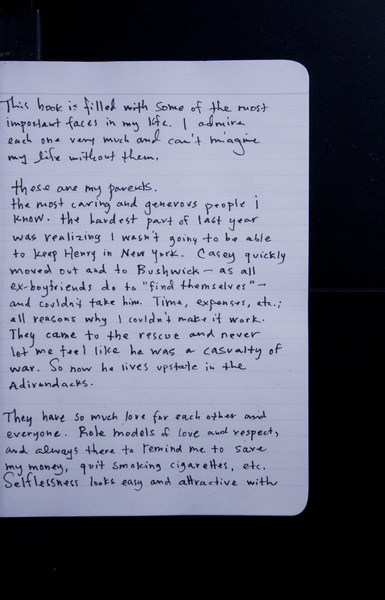 This book is filled with some of the most
important faces in my life. I admire
each one very much and can't imagine
my life without them.
these are my parents.
the most caring and generous people i
know. the hardest part of last year
was realizing I wasn't going to be able
to keep Henry in New York. Casey quickly
moved out and to Bushwick - as all
ex-boyfriends do to "find themselves" -
and couldn't take him. Time, expenses, etc.;
all reasons why I couldn't make it work.
They came to the rescue and never
let me feel like he was a casualty of
war. So now he lives upstate in the
Adirondacks.
They have so much love for each other and
everyone. Role models of love and respect,
and always there to remind me to save
my money, quit smoking cigarettes, etc.
Selflessness looks easy and attractive with